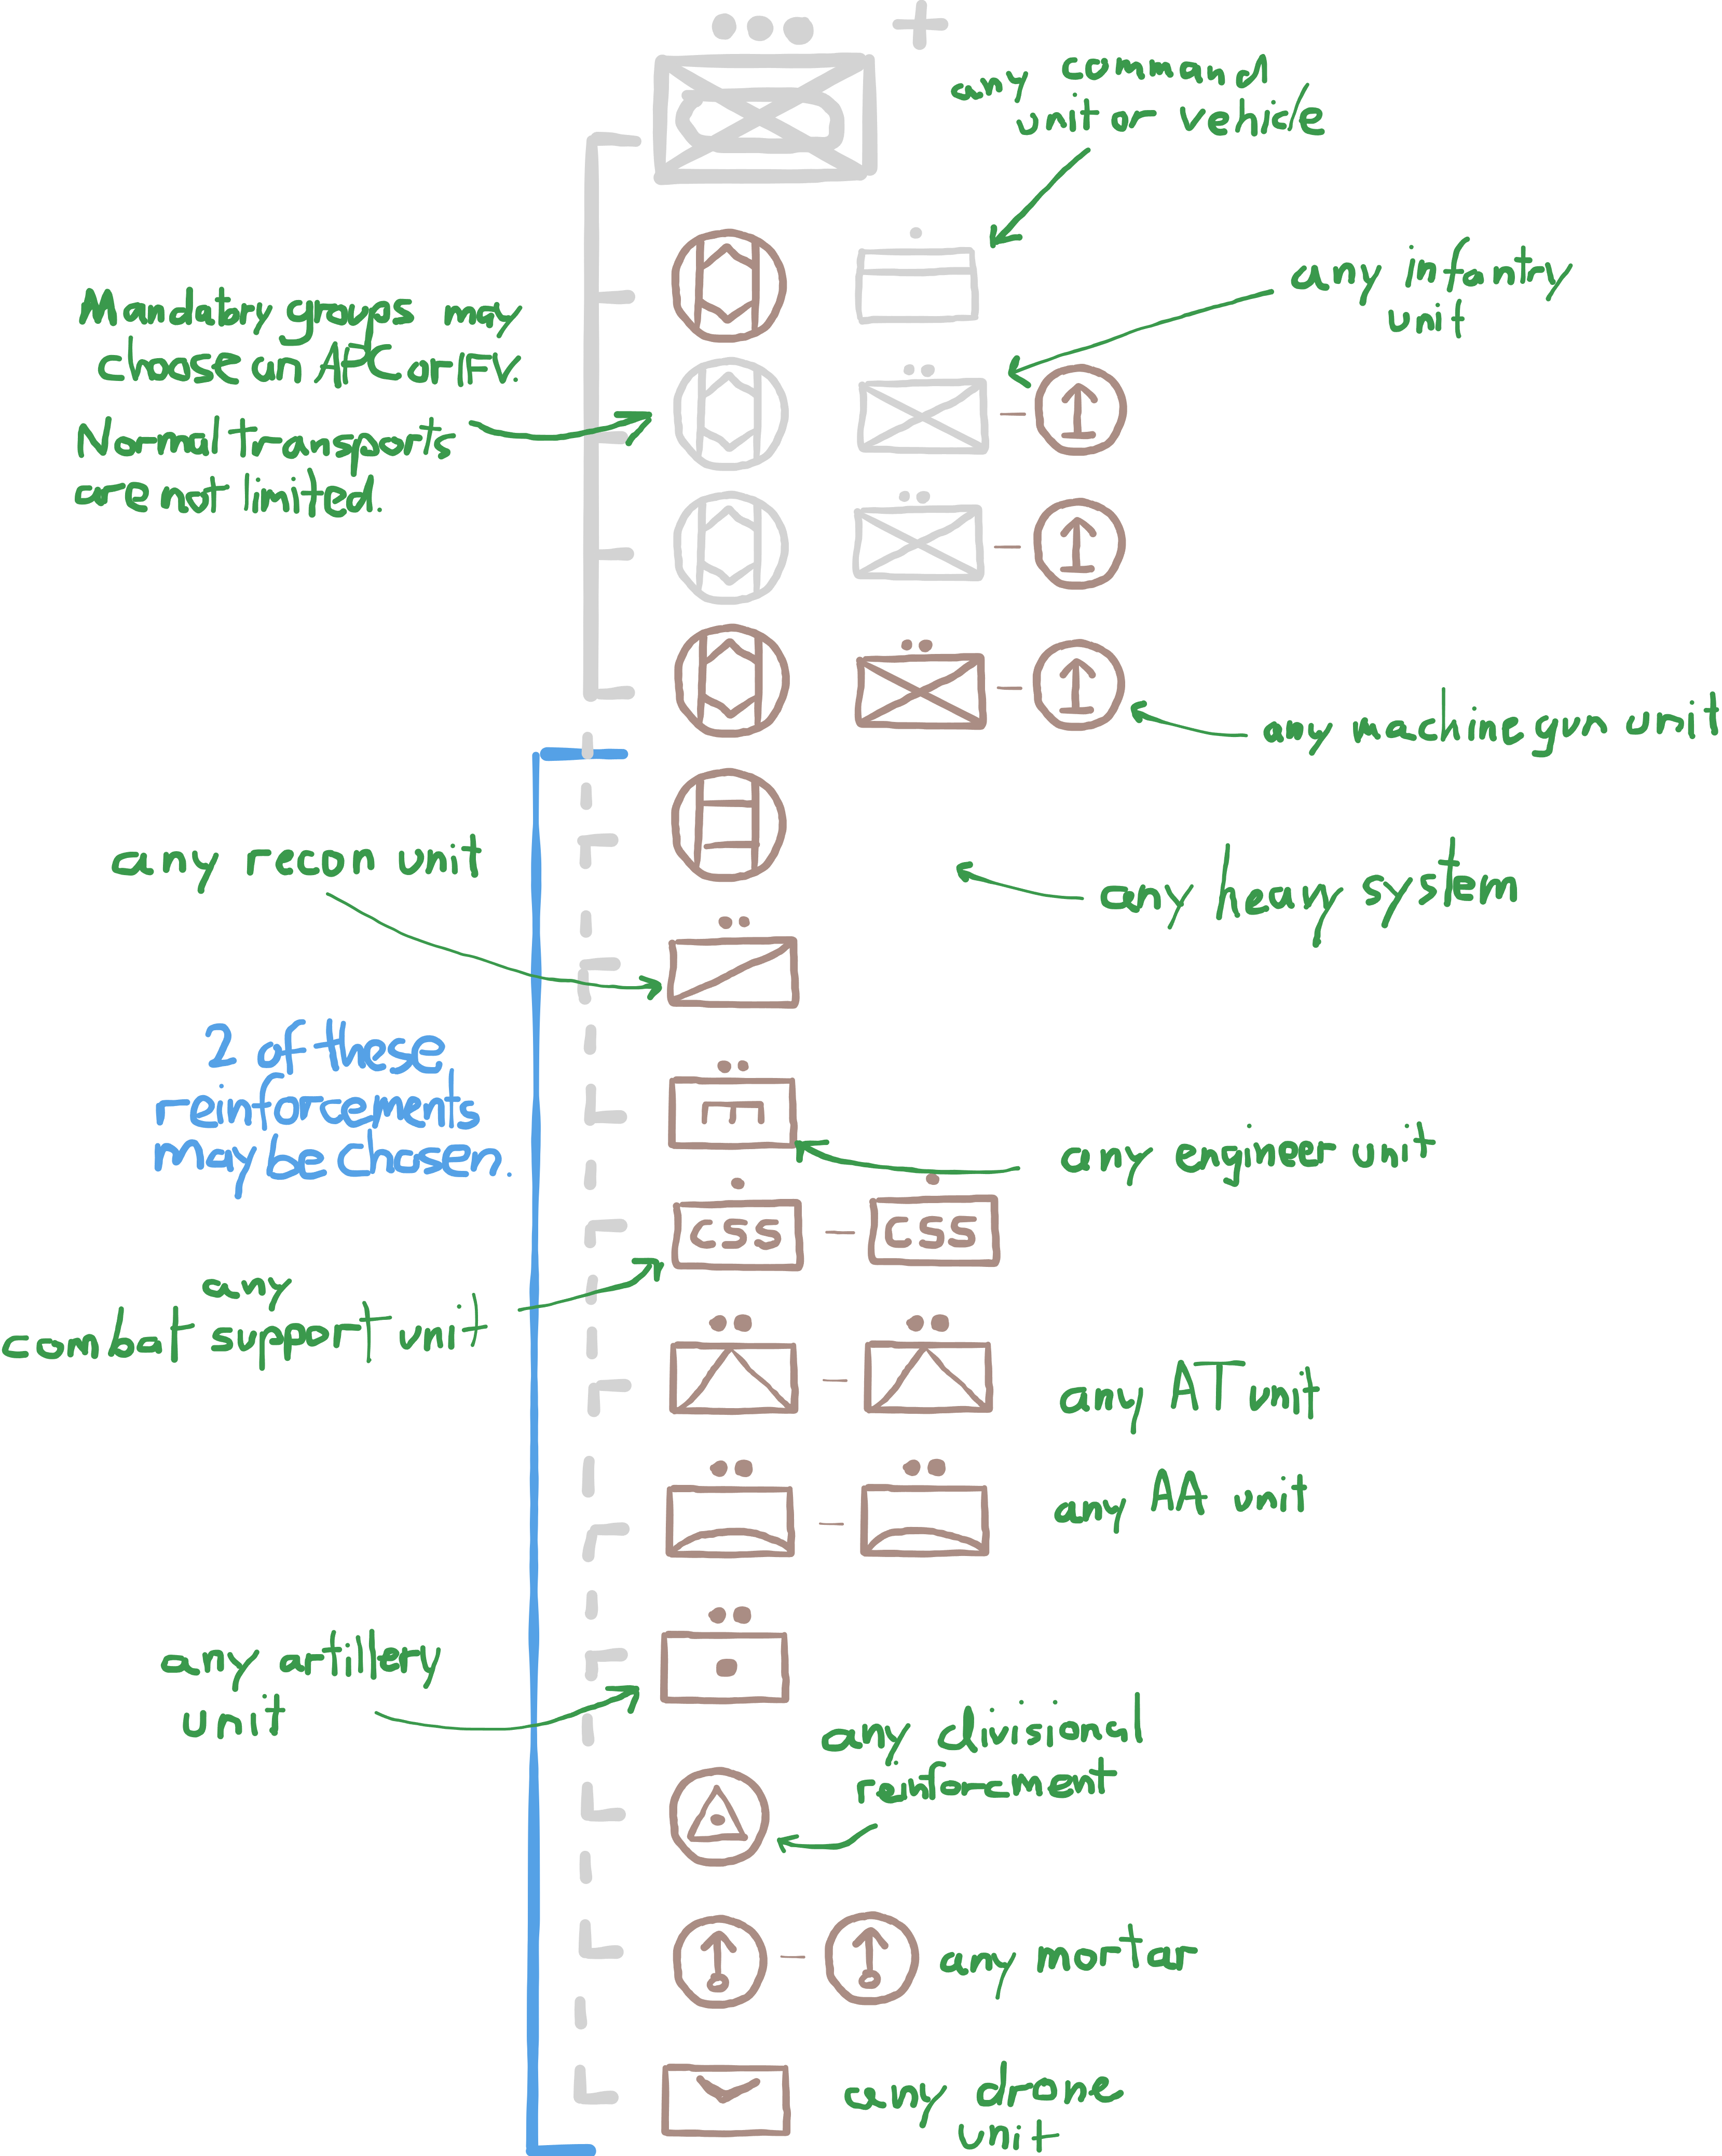 any command
unit or vehicle
any infantry
unit
Mandatory groups may
choose an APC or IFV.
Normal transports
are not limited.
any machine gun unit
any recon unit
any heavy system
2 of these
reinforcements
may be chosen.
any engineer unit
CSS - CSS
any
combat support unit
any AT unit
any AA unit
any artillery
unit
any divisional
reinforcement
any mortar
any drone
unit